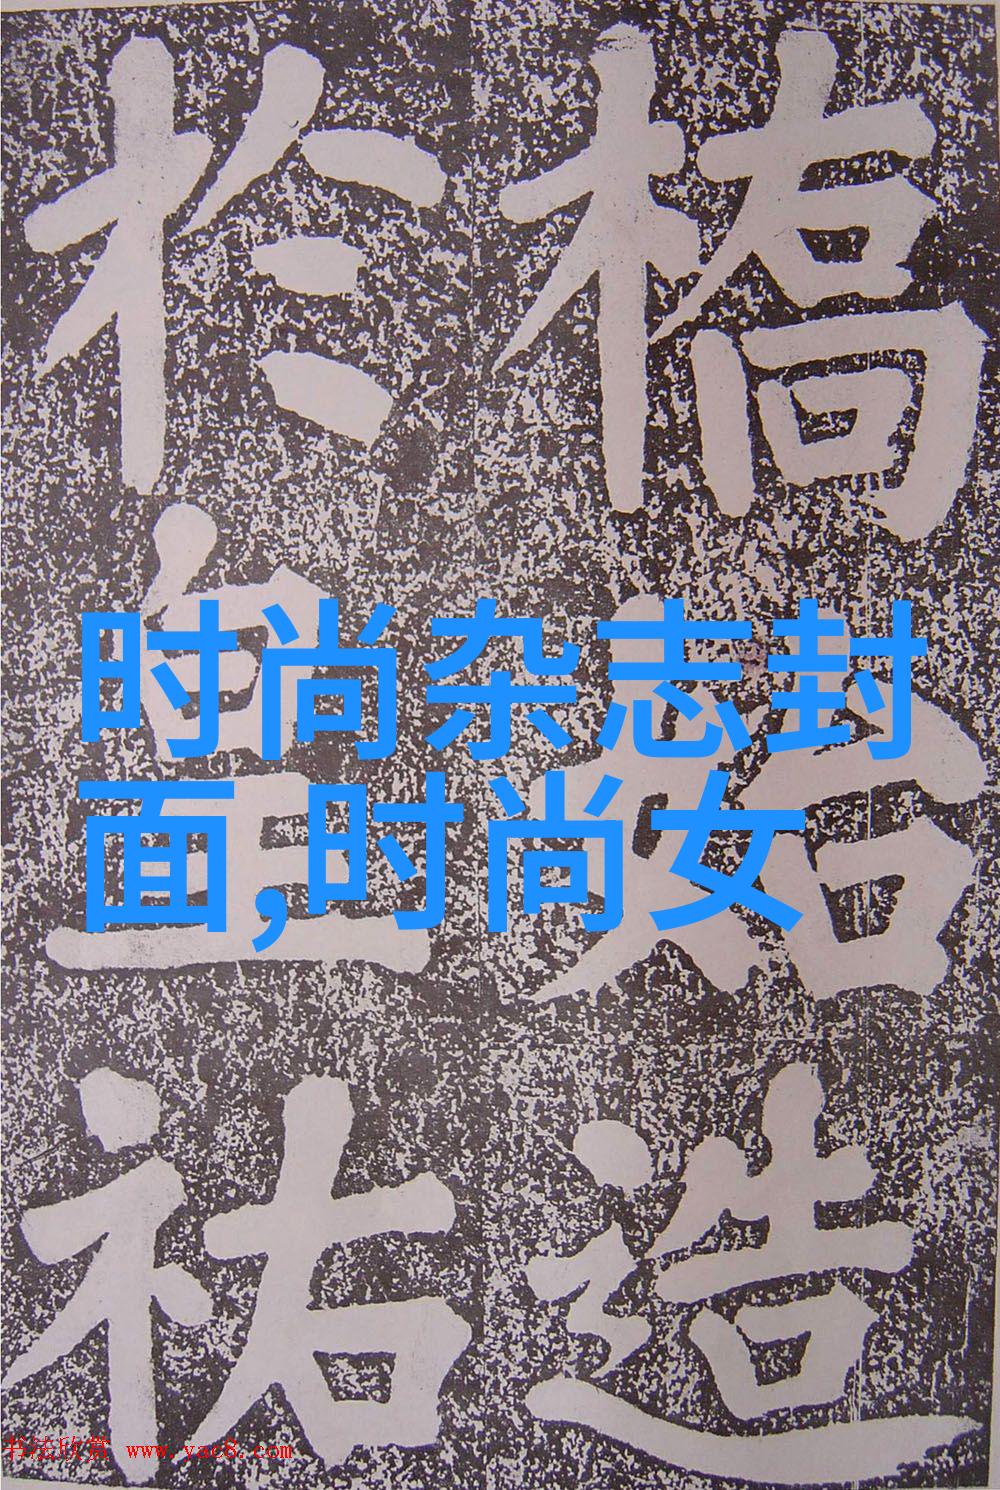 橋始造
於皇祐
时尚杂志封
面,时尚女
书法欣赏 www.yac8.com